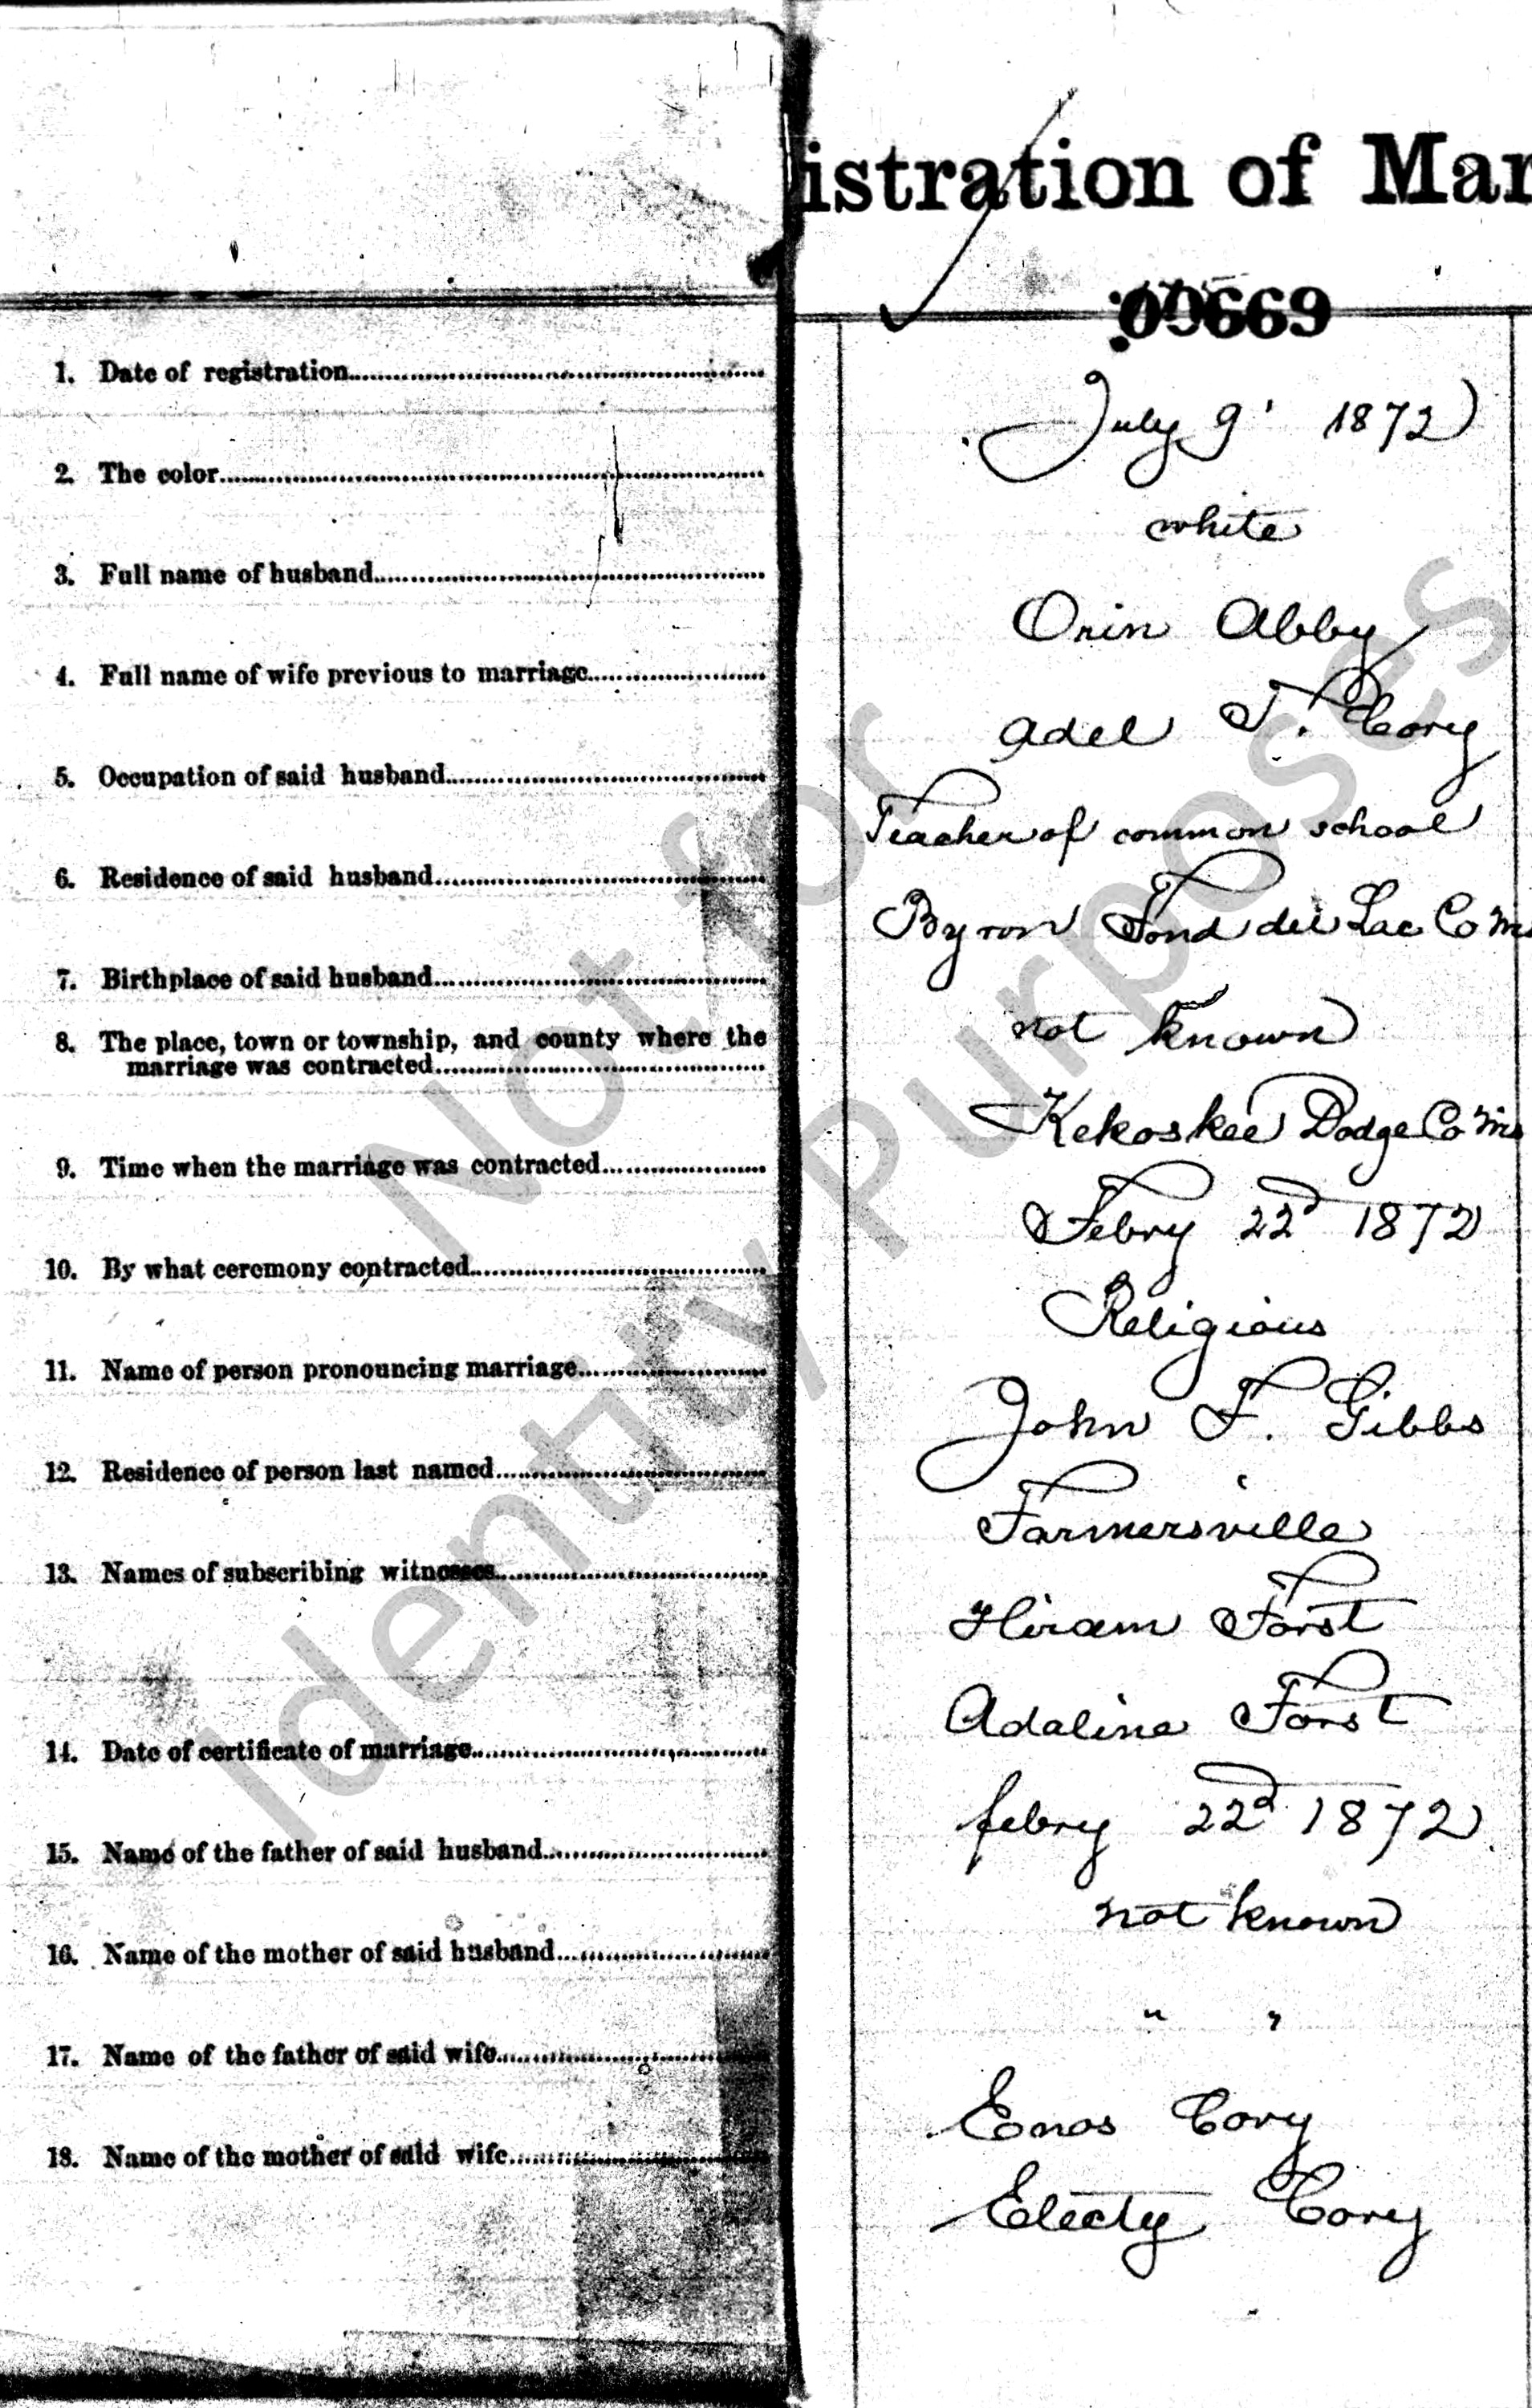 istration of Mar
09669
1. Date of registration
July 9' 1872
2. The color
white
3. Full name of husband
Orin Abby
4. Full name of wife previous to marriage
Adel T. Cory
5. Occupation of said husband
Teacher of common school
6. Residence of said husband
Byron Fond du Lac Co Wis
7. Birthplace of said husband
not known
8. The place, town or township, and county where the
marriage was contracted
Kekoskee Dodge Co Wis
9. Time when the marriage was contracted
Febry 22d 1872
10. By what ceremony contracted
Religious
11. Name of person pronouncing marriage
John F. Gibbs
12. Residence of person last named
Farmersville
13. Names of subscribing witnesses
Hiram Forst
Adaline Forst
14. Date of certificate of marriage
febry 22d 1872
15. Name of the father of said husband
not known
16. Name of the mother of said husband
" "
17. Name of the father of said wife
Enos Cory
18. Name of the mother of said wife
Electy Cory
Not for
Identity Purposes